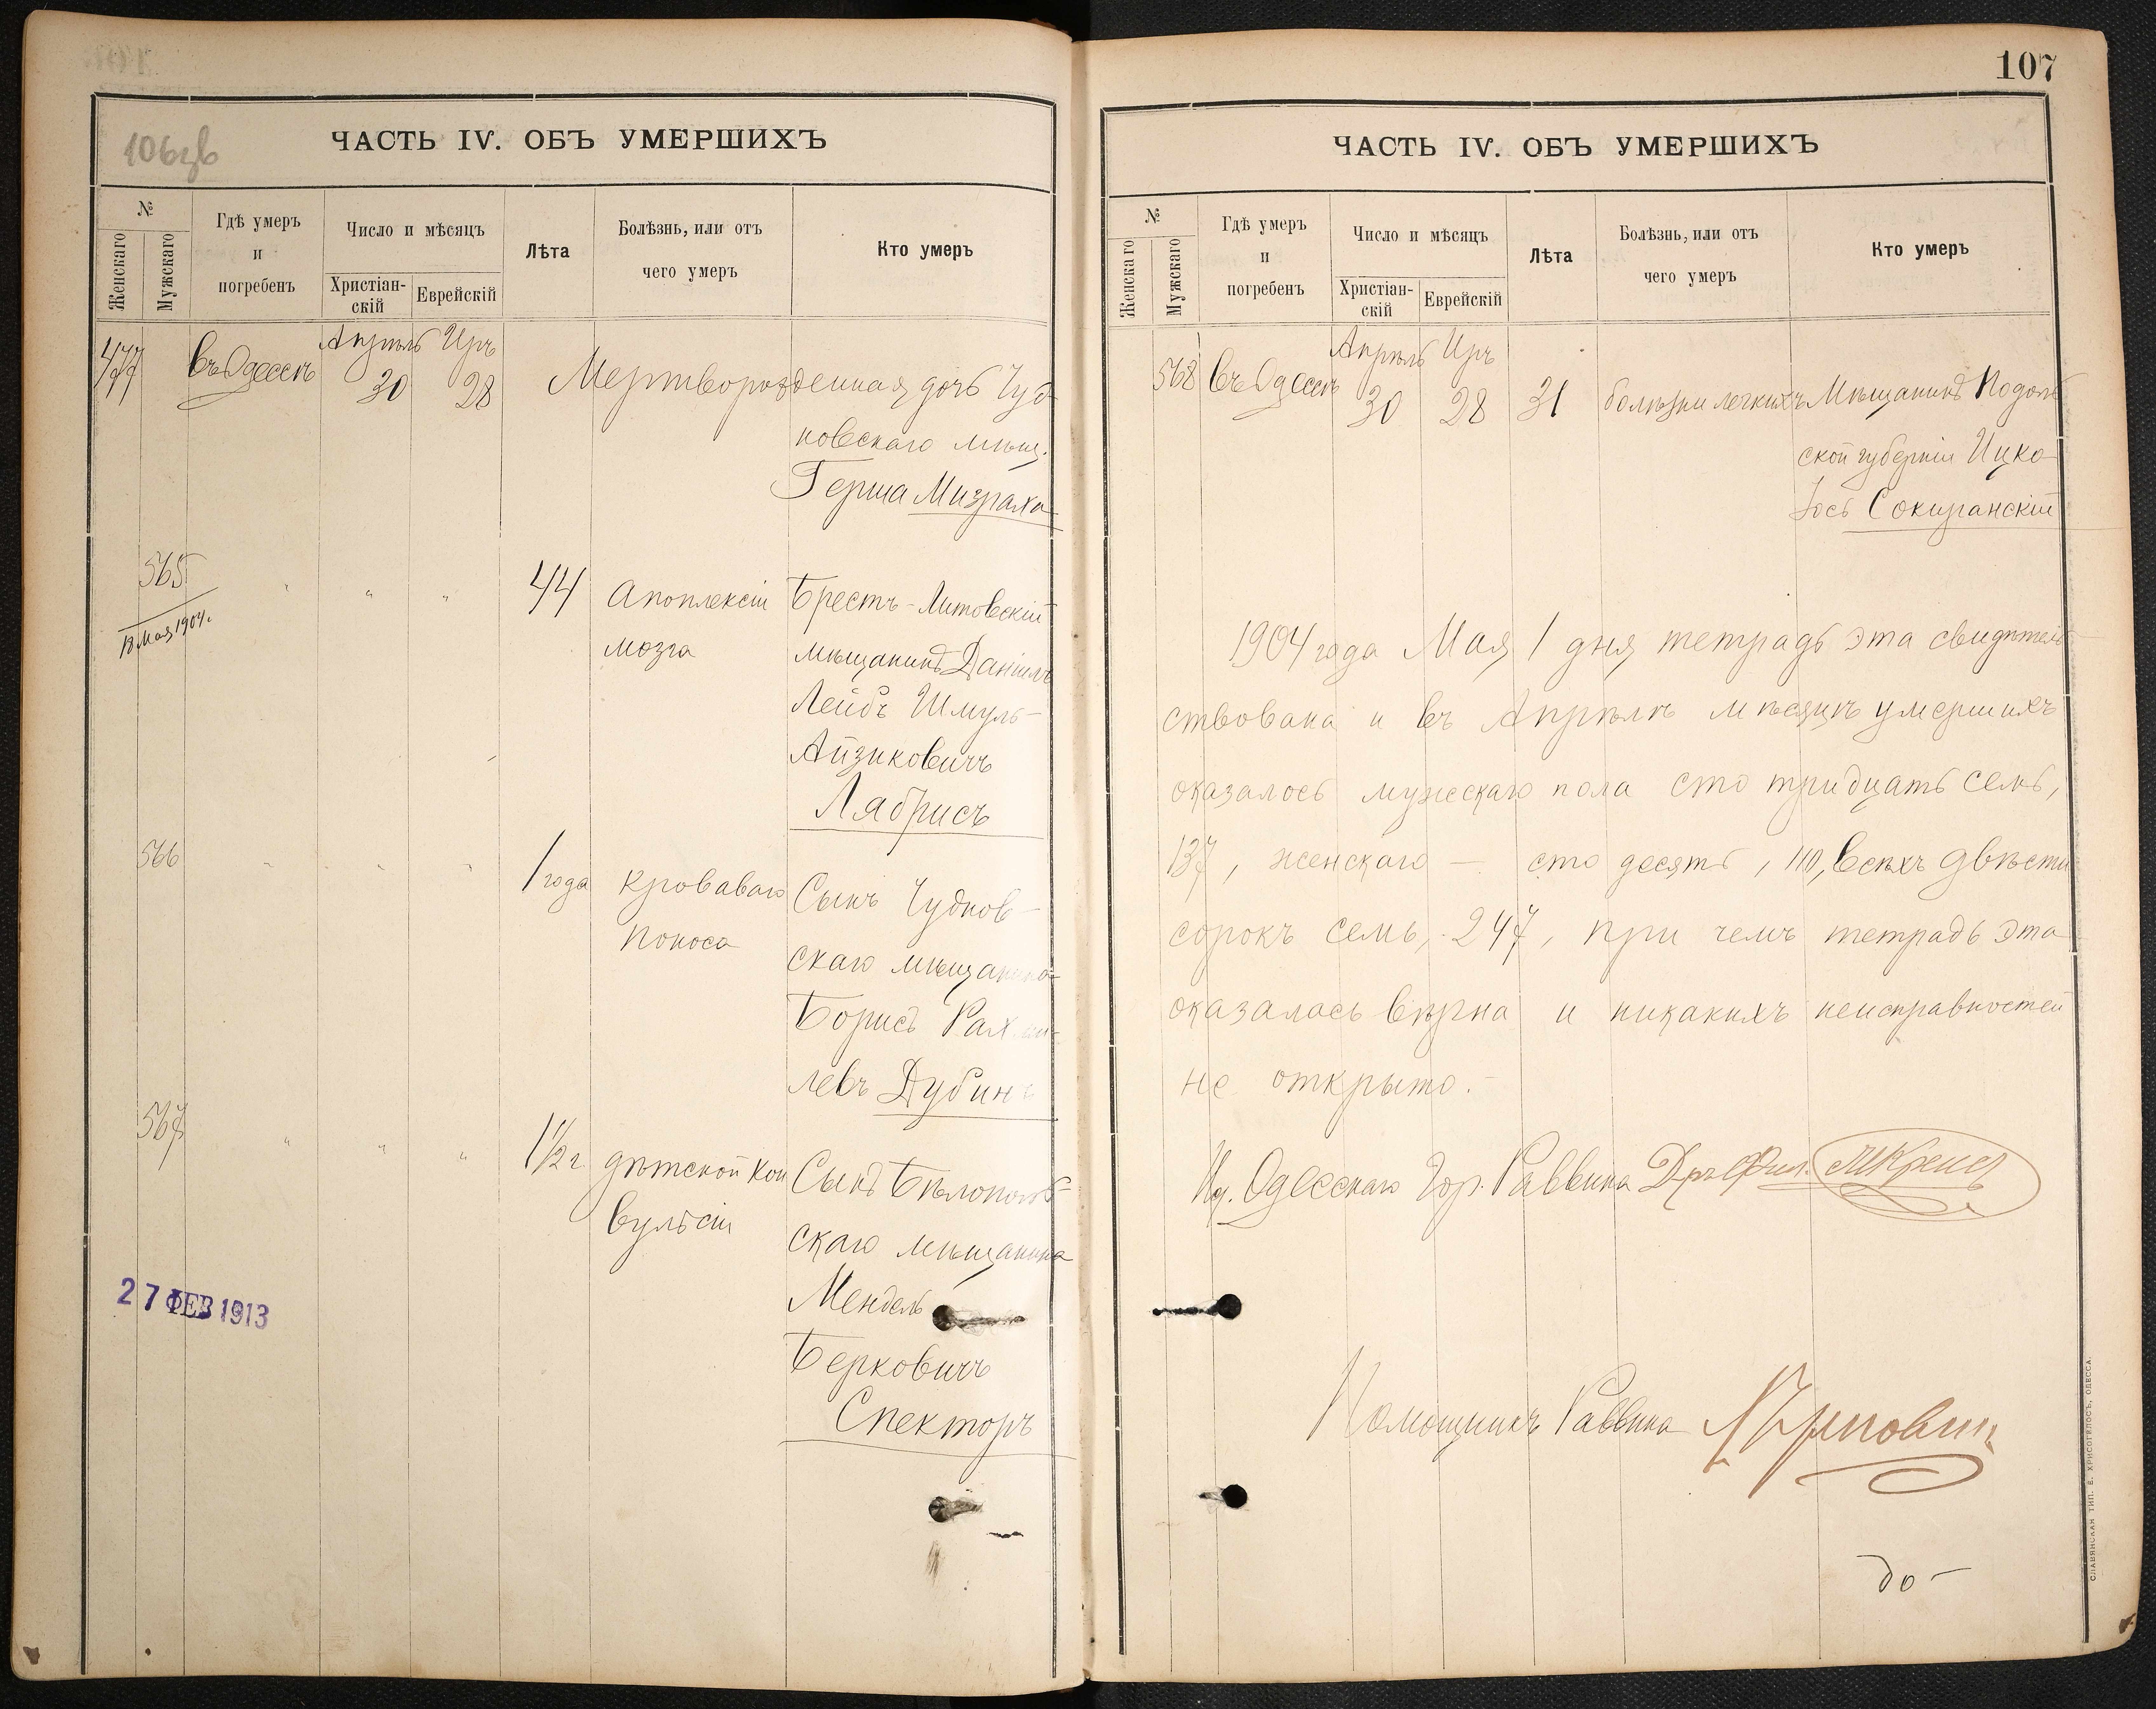 106зв
ЧАСТЬ IV. ОБЪ УМЕРШИХЪ
№
Женскаго
Мужскаго
Гдѣ умеръ
и
погребенъ
Число и мѣсяцъ
Христіан-
скій
Еврейскій
Лѣта
Болѣзнь, или отъ
чего умеръ
Кто умеръ
Апрѣль Иръ
477 въ Одессѣ 30 28 Мертворожденная дочь Чуд
новскаго мѣщ.
Герша Мизраха
565 " " " 44 Апоплексіи Брестъ-Литовскій
18 Мая 1904 г. мозга мѣщанинъ Даніилъ
Лейбъ Шмуль-
Айзиковичъ
Лябрисъ
566 " " " 1 года кроваваго Сынъ Чуднов-
поноса скаго мѣщанина
Борисъ Рахми-
левъ Дубинъ
567 " " " 1½ г. дѣтской кон Сынъ Бѣлополь-
вульсіи скаго мѣщанина
Мендель
Берковичъ
Спекторъ
27 ФЕВ 1913
107
ЧАСТЬ IV. ОБЪ УМЕРШИХЪ
№
Женскаго
Мужскаго
Гдѣ умеръ
и
погребенъ
Число и мѣсяцъ
Христіан-
скій
Еврейскій
Лѣта
Болѣзнь, или отъ
чего умеръ
Кто умеръ
Апрѣль Иръ
568 въ Одессѣ 30 28 31 болѣзни легкихъ Мѣщанинъ Подоль
ской губерніи Ицко-
Іось Сокирянскій
1904 года Мая 1 дня тетрадь эта свидѣтель-
ствована и въ Апрѣлѣ мѣсяцѣ умершихъ
оказалось мужескаго пола сто тридцать семь,
137, женскаго — сто десять, 110, всѣхъ двѣсти
сорокъ семь, 247, при чемъ тетрадь эта
оказалась вѣрна и никакихъ неисправностей
не открыто.-
И.д. Одесскаго Гор. Раввина Д-ръ Фил. Крепсъ
Помощникъ Раввина
до-
СЛАВЯНСКАЯ ТИП. Е. ХРИСОГЕЛОСЪ, ОДЕССА.